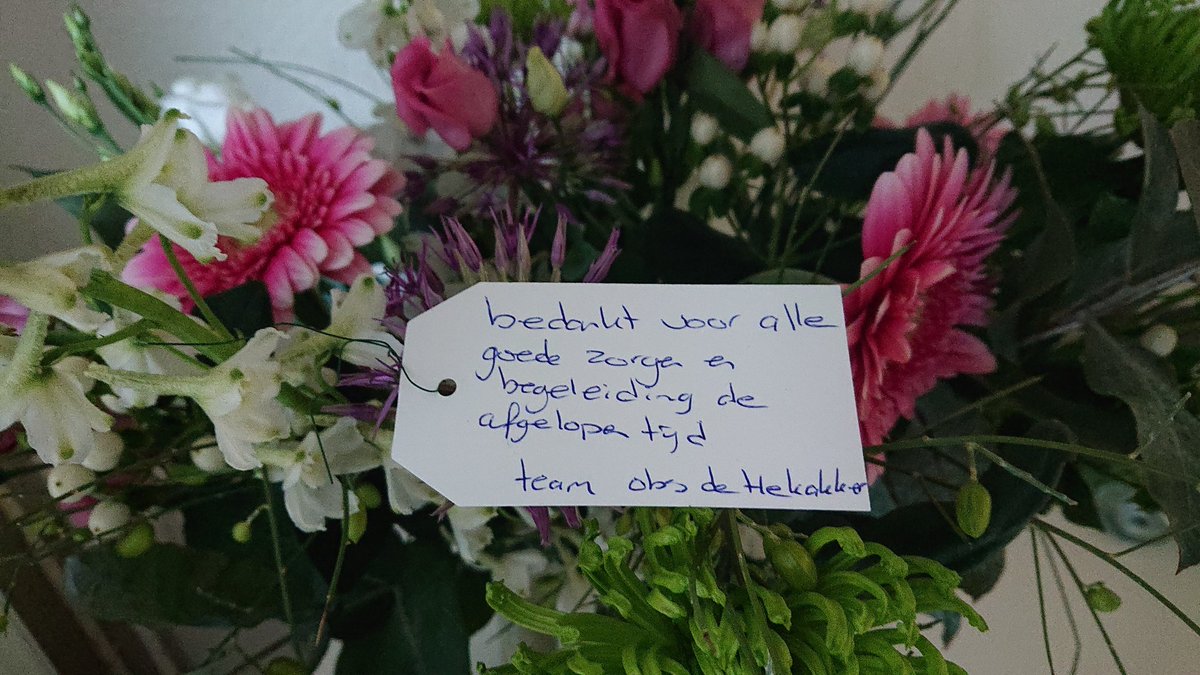 bedankt voor alle
goede zorgen en
begeleiding de
afgelopen tijd
team obs de Hekakker